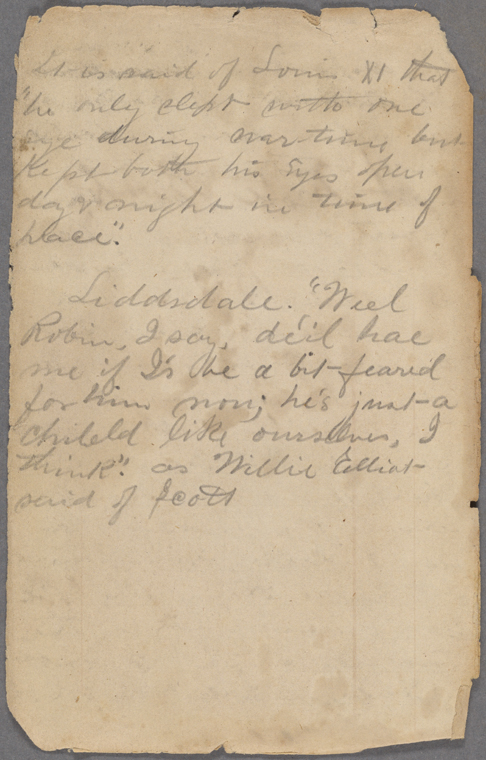 It is said of Louis XI that
"he only slept with one
eye during war-time, but
Kept both his Eyes open
day & night in time of
peace".
Liddsdale. "Weel
Robin, I say, de'il hae
me if I's be a bit-feared
for him now; he's just-a
chield like ourselves, I
think". as Willie Elliot-
said of Scott